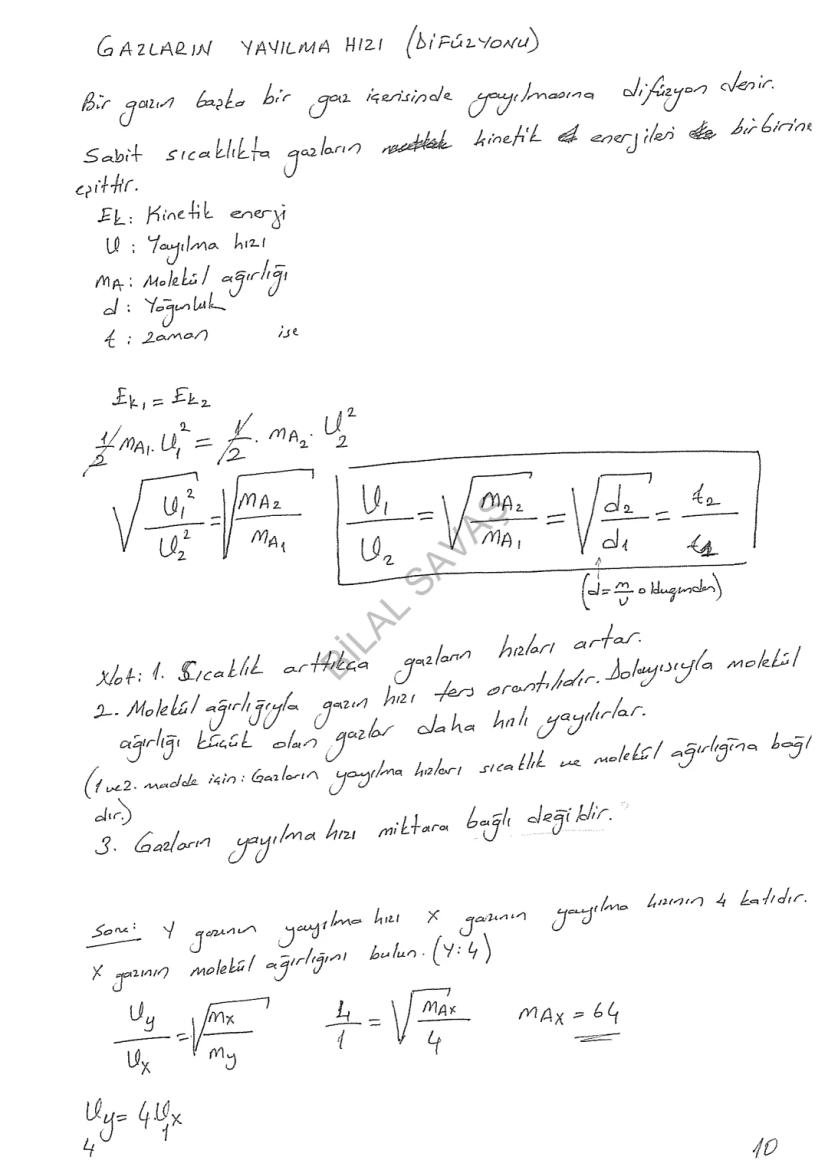 GAZLARIN YAYILMA HIZI (DİFÜZYONU)
Bir gazın başka bir gaz içerisinde yayılmasına difüzyon denir.
Sabit sıcaklıkta gazların kinetik enerjileri birbirine
eşittir.
Ek: Kinetik enerji
U : Yayılma hızı
MA: Molekül ağırlığı
d : Yoğunluk
t : zaman ise
Ek₁ = Ek₂
1/2 MA₁. U₁² = 1/2 . MA₂. U₂²
√(U₁²/U₂²) = √(MA₂/MA₁) U₁/U₂ = √(MA₂/MA₁) = √(d₂/d₁) = t₂/t₁
(d = m/v olduğundan)
BİLAL SAVAŞ
Not: 1. Sıcaklık arttıkça gazların hızları artar.
2. Molekül ağırlığıyla gazın hızı ters orantılıdır. Dolayısıyla molekül
ağırlığı küçük olan gazlar daha hızlı yayılırlar.
(1 ve 2. madde için: Gazların yayılma hızları sıcaklık ve molekül ağırlığına bağlı
dır.)
3. Gazların yayılma hızı miktara bağlı değildir.
Soru: Y gazının yayılma hızı X gazının yayılma hızının 4 katıdır.
X gazının molekül ağırlığını bulun. (Y: 4)
Uy/Ux = √(Mx/My) 4/1 = √(MAx/4) MAx = 64
Uy = 4.Ux
4 1
10